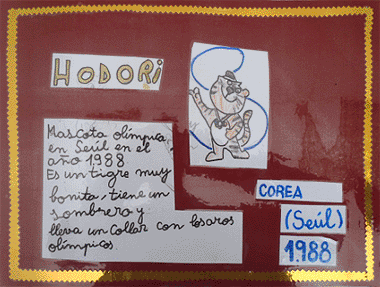 HODORI
Mascota olímpica
en Seúl en el
año 1988
Es un tigre muy
bonita, tiene un
sombrero y
lleva un collar con losaros
olímpicos
COREA
(Seúl)
1.988